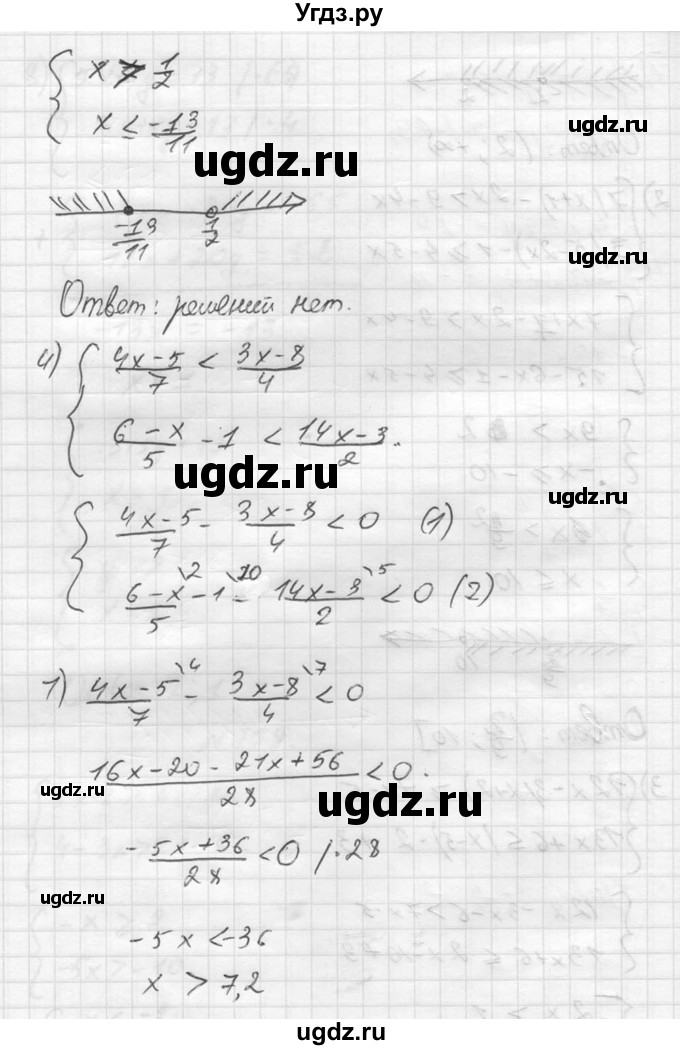 Угдз.ру
{ x > 1/2
x ≤ -13/11
ugdz.ru
ugdz.ru
-13/11 1/2
ugdz.ru
Ответ: решений нет.
4) { (4x-5)/7 < (3x-8)/4
(6-x)/5 - 1 < (14x-3)/2.
ugdz.ru
ugdz.ru
{ (4x-5)/7 - (3x-8)/4 < 0 (1)
(6-x)/5 \2 - 1 \10 - (14x-3)/2 \5 < 0 (2)
1) (4x-5)/7 \4 - (3x-8)/4 \7 < 0
(16x-20-21x+56)/28 < 0.
ugdz.ru
ugdz.ru
(-5x+36)/28 < 0 |·28
ugdz.ru
-5x < -36
x > 7,2
ugdz.ru